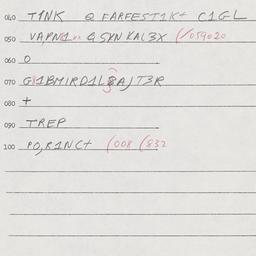 040 T1NK Q FARFEST1K+ C1GL
050 VAPN1 Q SKN KAL3X (/059020
060 O
070 G1BMIRD1L8AJT3R
080 +
090 TREP
100 PO,R1NC+ (008 (832